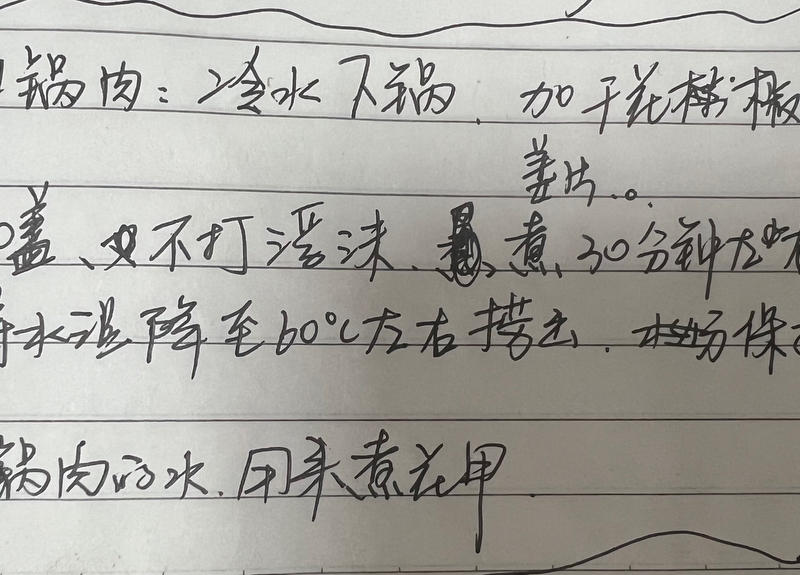 锅肉：冷水下锅、加干花椒
姜片。
盖、不打浮沫、煮30分钟左右
水温降至60℃左右捞出、保
锅肉的水、用来煮花甲